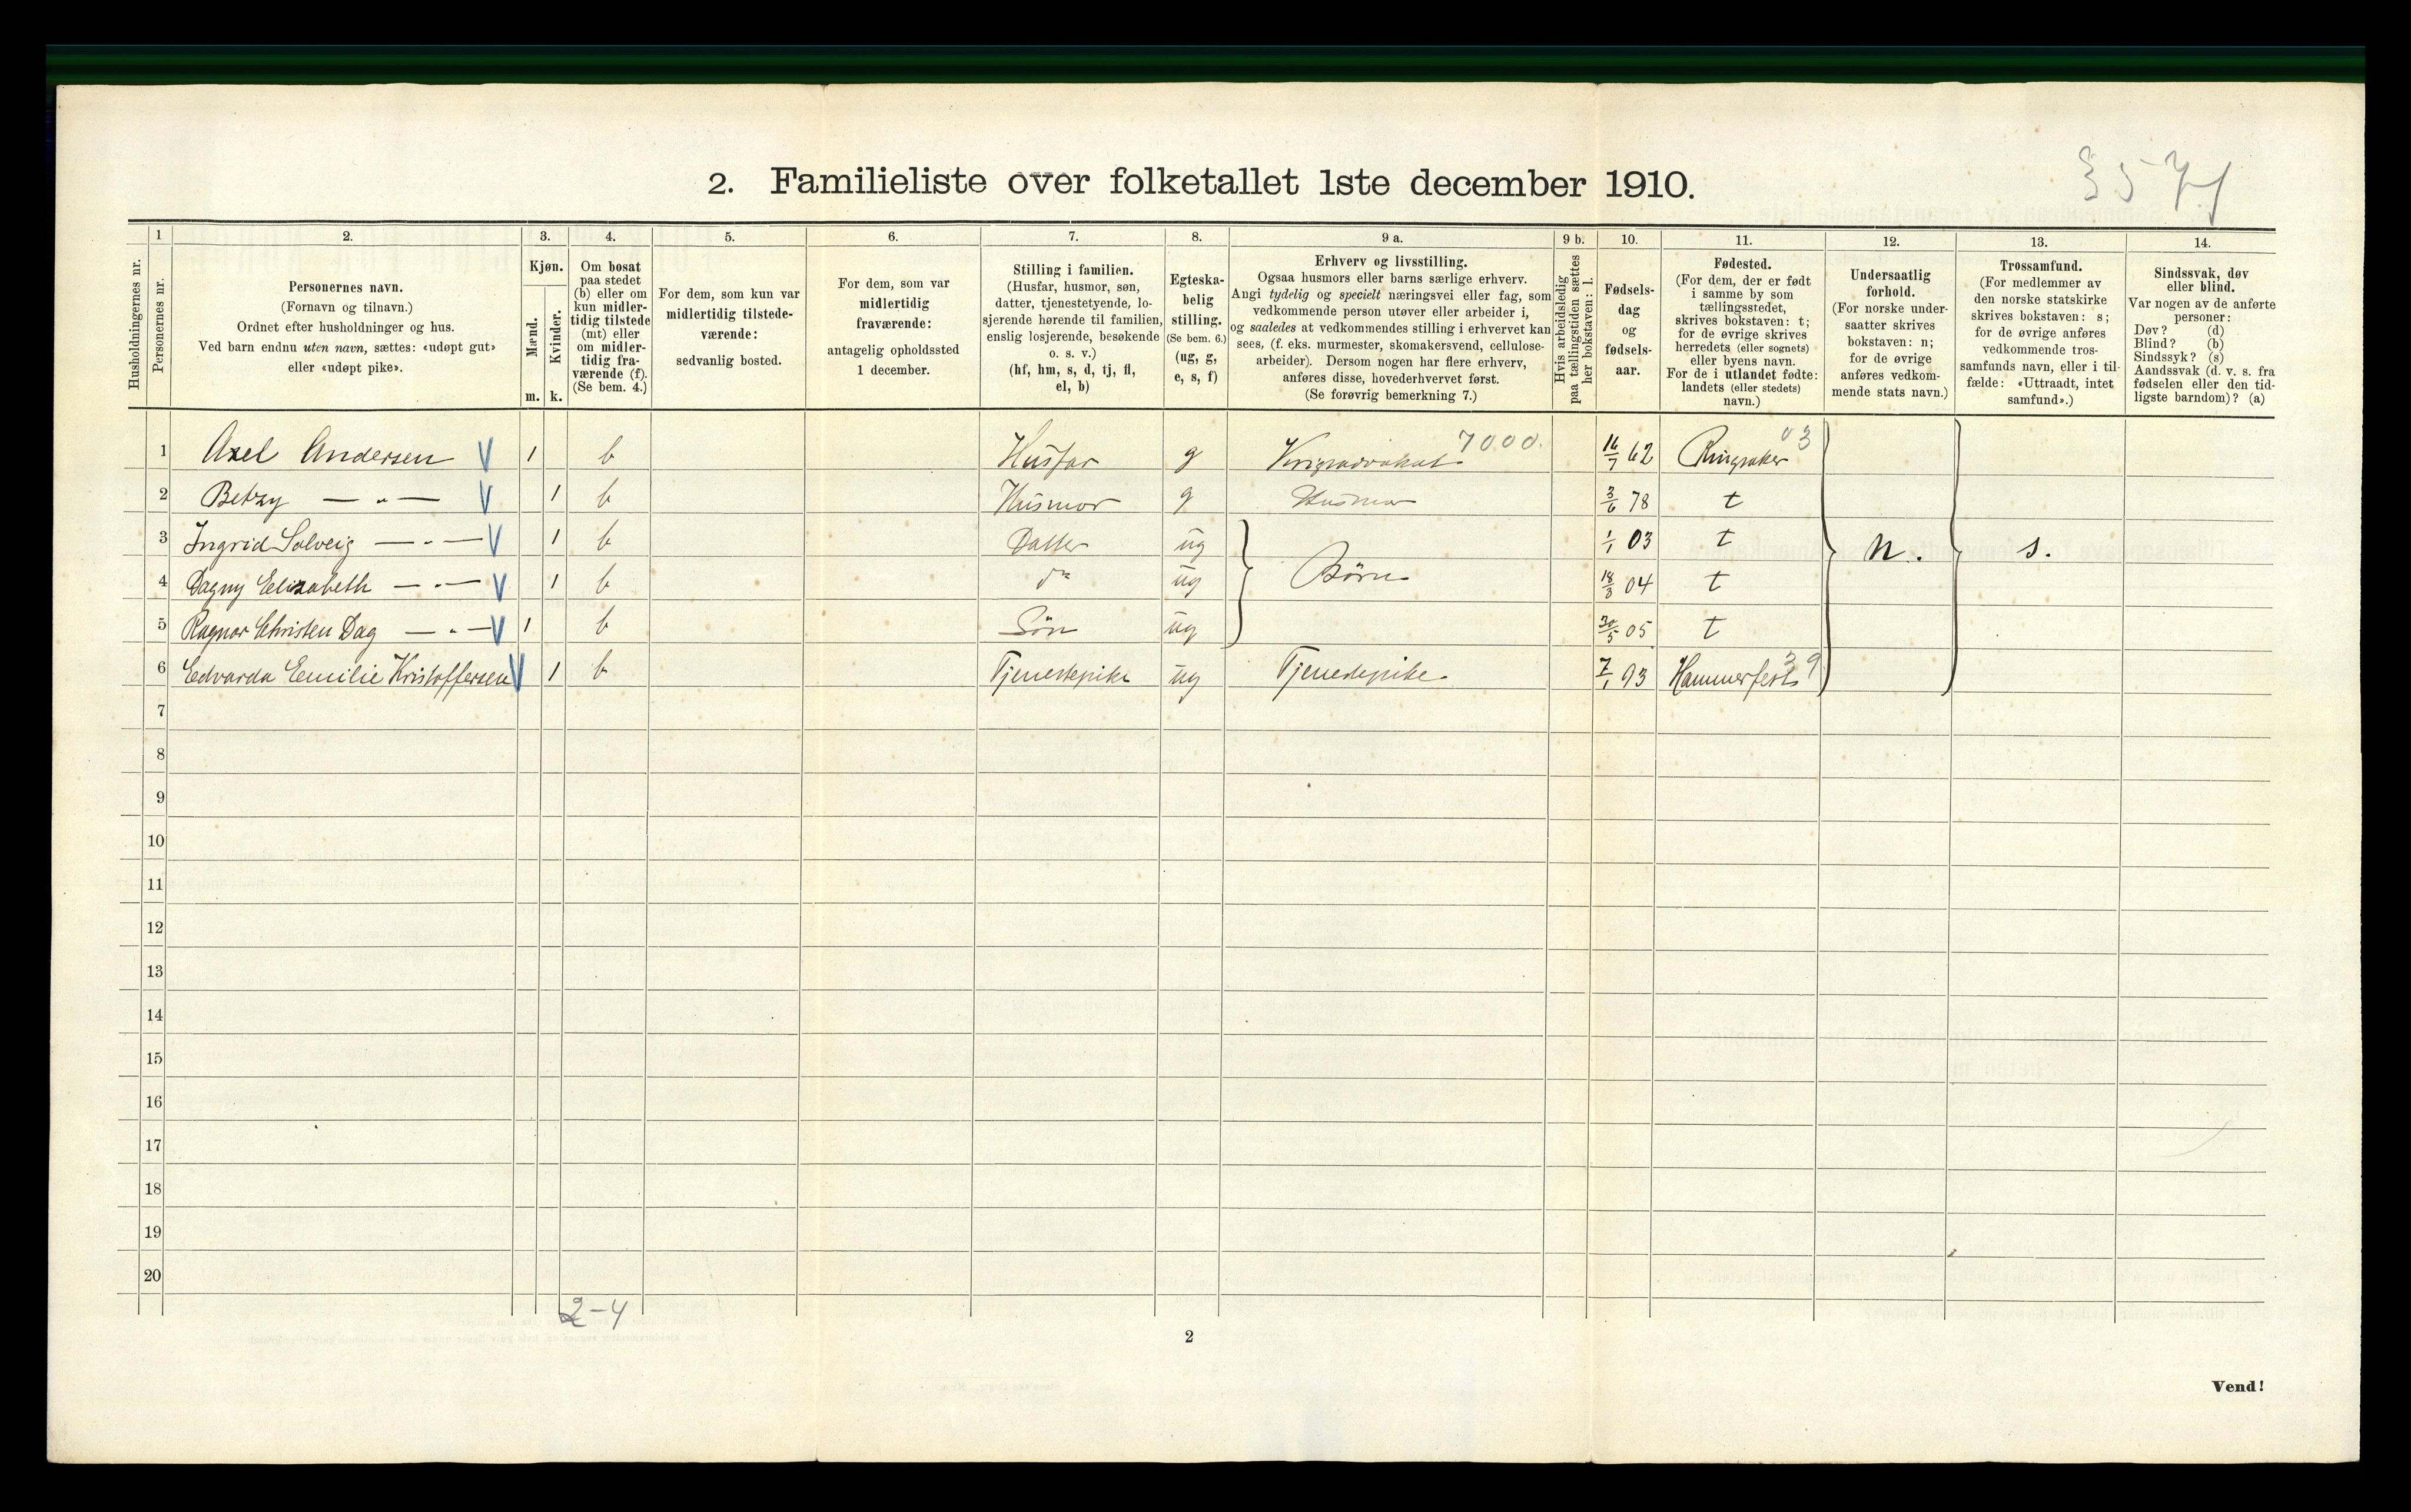 2. Familieliste over folketallet 1ste december 1910.
3571
Husholdningernes nr.
1
Personernes nr.
2.
Personernes navn.
(Fornavn og tilnavn.)
Ordnet efter husholdninger og hus.
Ved barn endnu uten navn, sættes: «udøpt gut»
eller «udøpt pike».
3.
Kjøn.
Mænd.
Kvinder.
m. k.
4.
Om bosat
paa stedet
(b) eller om
kun midler-
tidig tilstede
(mt) eller
om midler-
tidig fra-
værende (f).
(Se bem. 4.)
5.
For dem, som kun var
midlertidig tilstede-
værende:
sedvanlig bosted.
6.
For dem, som var
midlertidig
fraværende:
antagelig opholdssted
1 december.
7.
Stilling i familien.
(Husfar, husmor, søn,
datter, tjenestetyende, lo-
sjerende hørende til familien,
enslig losjerende, besøkende
o. s. v.)
(hf, hm, s, d, tj, fl,
el, b)
8.
Egteska-
belig
stilling.
(Se bem. 6.)
(ug, g,
e, s, f)
9 a.
Erhverv og livsstilling.
Ogsaa husmors eller barns særlige erhverv.
Angi tydelig og specielt næringsvei eller fag, som
vedkommende person utøver eller arbeider i,
og saaledes at vedkommendes stilling i erhvervet kan
sees, (f. eks. murmester, skomakersvend, cellulose-
arbeider). Dersom nogen har flere erhverv,
anføres disse, hovederhvervet først.
(Se forøvrig bemerkning 7.)
9 b.
Hvis arbeidsledig
paa tællingstiden sættes
her bokstaven: l.
10.
Fødsels-
dag
og
fødsels-
aar.
11.
Fødested.
(For dem, der er født
i samme by som
tællingsstedet,
skrives bokstaven: t;
for de øvrige skrives
herredets (eller sognets)
eller byens navn.
For de i utlandet fødte:
landets (eller stedets)
navn.)
12.
Undersaatlig
forhold.
(For norske under-
saatter skrives
bokstaven: n;
for de øvrige
anføres vedkom-
mende stats navn.)
13.
Trossamfund.
(For medlemmer av
den norske statskirke
skrives bokstaven: s;
for de øvrige anføres
vedkommende tros-
samfunds navn, eller i til-
fælde: «Uttraadt, intet
samfund».)
14.
Sindssvak, døv
eller blind.
Var nogen av de anførte
personer:
Døv? (d)
Blind? (b)
Sindssyk? (s)
Aandssvak (d. v. s. fra
fødselen eller den tid-
ligste barndom)? (a)
1 Axel Andersen V 1 b Husfar g 7000. 16/7 62 Ringsaker 03
2 Betzy — „ — V 1 b Husmor g Husmor 3/6 78 t
3 Ingrid Solveig — „ — V 1 b Datter ug 1/1 03 t n. s.
4 Dagny Elizabeth — „ — V 1 b do ug Børn 18/3 04 t
5 Ragnar Christen Dag — „ — V 1 b Søn ug 30/5 05 t
6 Edvarda Emilie Kristoffersen V 1 b Tjenestepike ug Tjenestepike 7/1 93 Hammerfest 39
7
8
9
10
11
12
13
14
15
16
17
18
19
20
2-4
2
Vend!